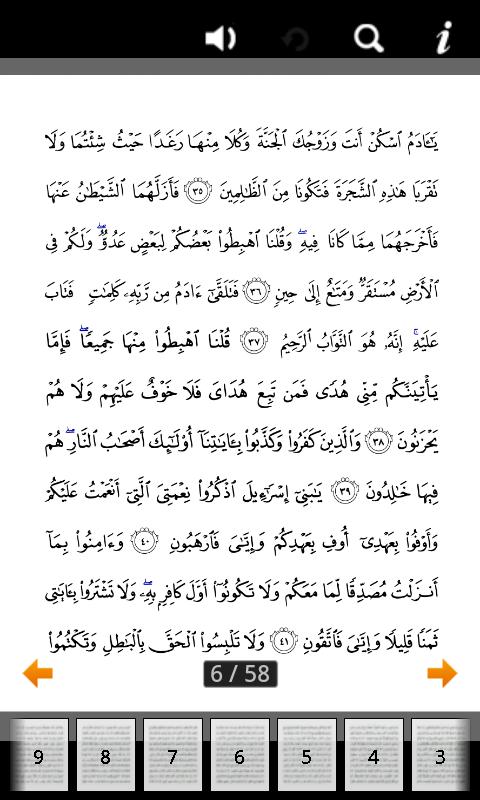 يَـٰٓـَٔادَمُ ٱسْكُنْ أَنتَ وَزَوْجُكَ ٱلْجَنَّةَ وَكُلَا مِنْهَا رَغَدًا حَيْثُ شِئْتُمَا وَلَا
تَقْرَبَا هَـٰذِهِ ٱلشَّجَرَةَ فَتَكُونَا مِنَ ٱلظَّـٰلِمِينَ ٣٥ فَأَزَلَّهُمَا ٱلشَّيْطَـٰنُ عَنْهَا
فَأَخْرَجَهُمَا مِمَّا كَانَا فِيهِ ۖ وَقُلْنَا ٱهْبِطُوا۟ بَعْضُكُمْ لِبَعْضٍ عَدُوٌّ ۖ وَلَكُمْ فِى
ٱلْأَرْضِ مُسْتَقَرٌّ وَمَتَـٰعٌ إِلَىٰ حِينٍ ٣٦ فَتَلَقَّىٰٓ ءَادَمُ مِن رَّبِّهِۦ كَلِمَـٰتٍ فَتَابَ
عَلَيْهِ ۚ إِنَّهُۥ هُوَ ٱلتَّوَّابُ ٱلرَّحِيمُ ٣٧ قُلْنَا ٱهْبِطُوا۟ مِنْهَا جَمِيعًا ۖ فَإِمَّا
يَأْتِيَنَّكُم مِّنِّى هُدًى فَمَن تَبِعَ هُدَاىَ فَلَا خَوْفٌ عَلَيْهِمْ وَلَا هُمْ
يَحْزَنُونَ ٣٨ وَٱلَّذِينَ كَفَرُوا۟ وَكَذَّبُوا۟ بِـَٔايَـٰتِنَآ أُو۟لَـٰٓئِكَ أَصْحَـٰبُ ٱلنَّارِ ۖ هُمْ
فِيهَا خَـٰلِدُونَ ٣٩ يَـٰبَنِىٓ إِسْرَٰٓءِيلَ ٱذْكُرُوا۟ نِعْمَتِىَ ٱلَّتِىٓ أَنْعَمْتُ عَلَيْكُمْ
وَأَوْفُوا۟ بِعَهْدِىٓ أُوفِ بِعَهْدِكُمْ وَإِيَّـٰىَ فَٱرْهَبُونِ ٤٠ وَءَامِنُوا۟ بِمَآ
أَنزَلْتُ مُصَدِّقًا لِّمَا مَعَكُمْ وَلَا تَكُونُوٓا۟ أَوَّلَ كَافِرٍۭ بِهِۦ ۖ وَلَا تَشْتَرُوا۟ بِـَٔايَـٰتِى
ثَمَنًا قَلِيلًا وَإِيَّـٰىَ فَٱتَّقُونِ ٤١ وَلَا تَلْبِسُوا۟ ٱلْحَقَّ بِٱلْبَـٰطِلِ وَتَكْتُمُوا۟
6 / 58
9 8 7 6 5 4 3